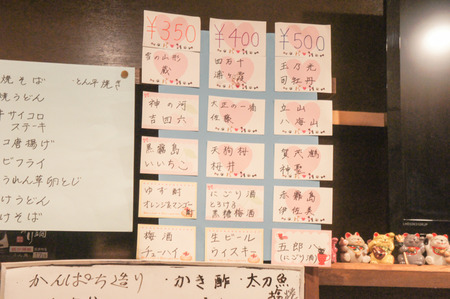 焼そば
とん平焼き
焼うどん
サイコロ
ステーキ
コ唐揚げ
ビフライ
うれん草卵とじ
けうどん
けそば
¥350
¥400
¥500
蔵
四万十
浦霞
玉乃光
司牡丹
神の河
吉四六
大正の一滴
佐藤
立山
八海山
黒霧島
いいちこ
天狗桜
桜井
賀茂鶴
ゆず酎
オレンジ&マンゴー酎
にごり酒
とろける
黒糖梅酒
赤霧島
伊佐美
梅酒
チューハイ
生ビール
ウイスキー
五郎八
(にごり酒)
かんぱち造り
・かき酢
・太刀魚
塩焼